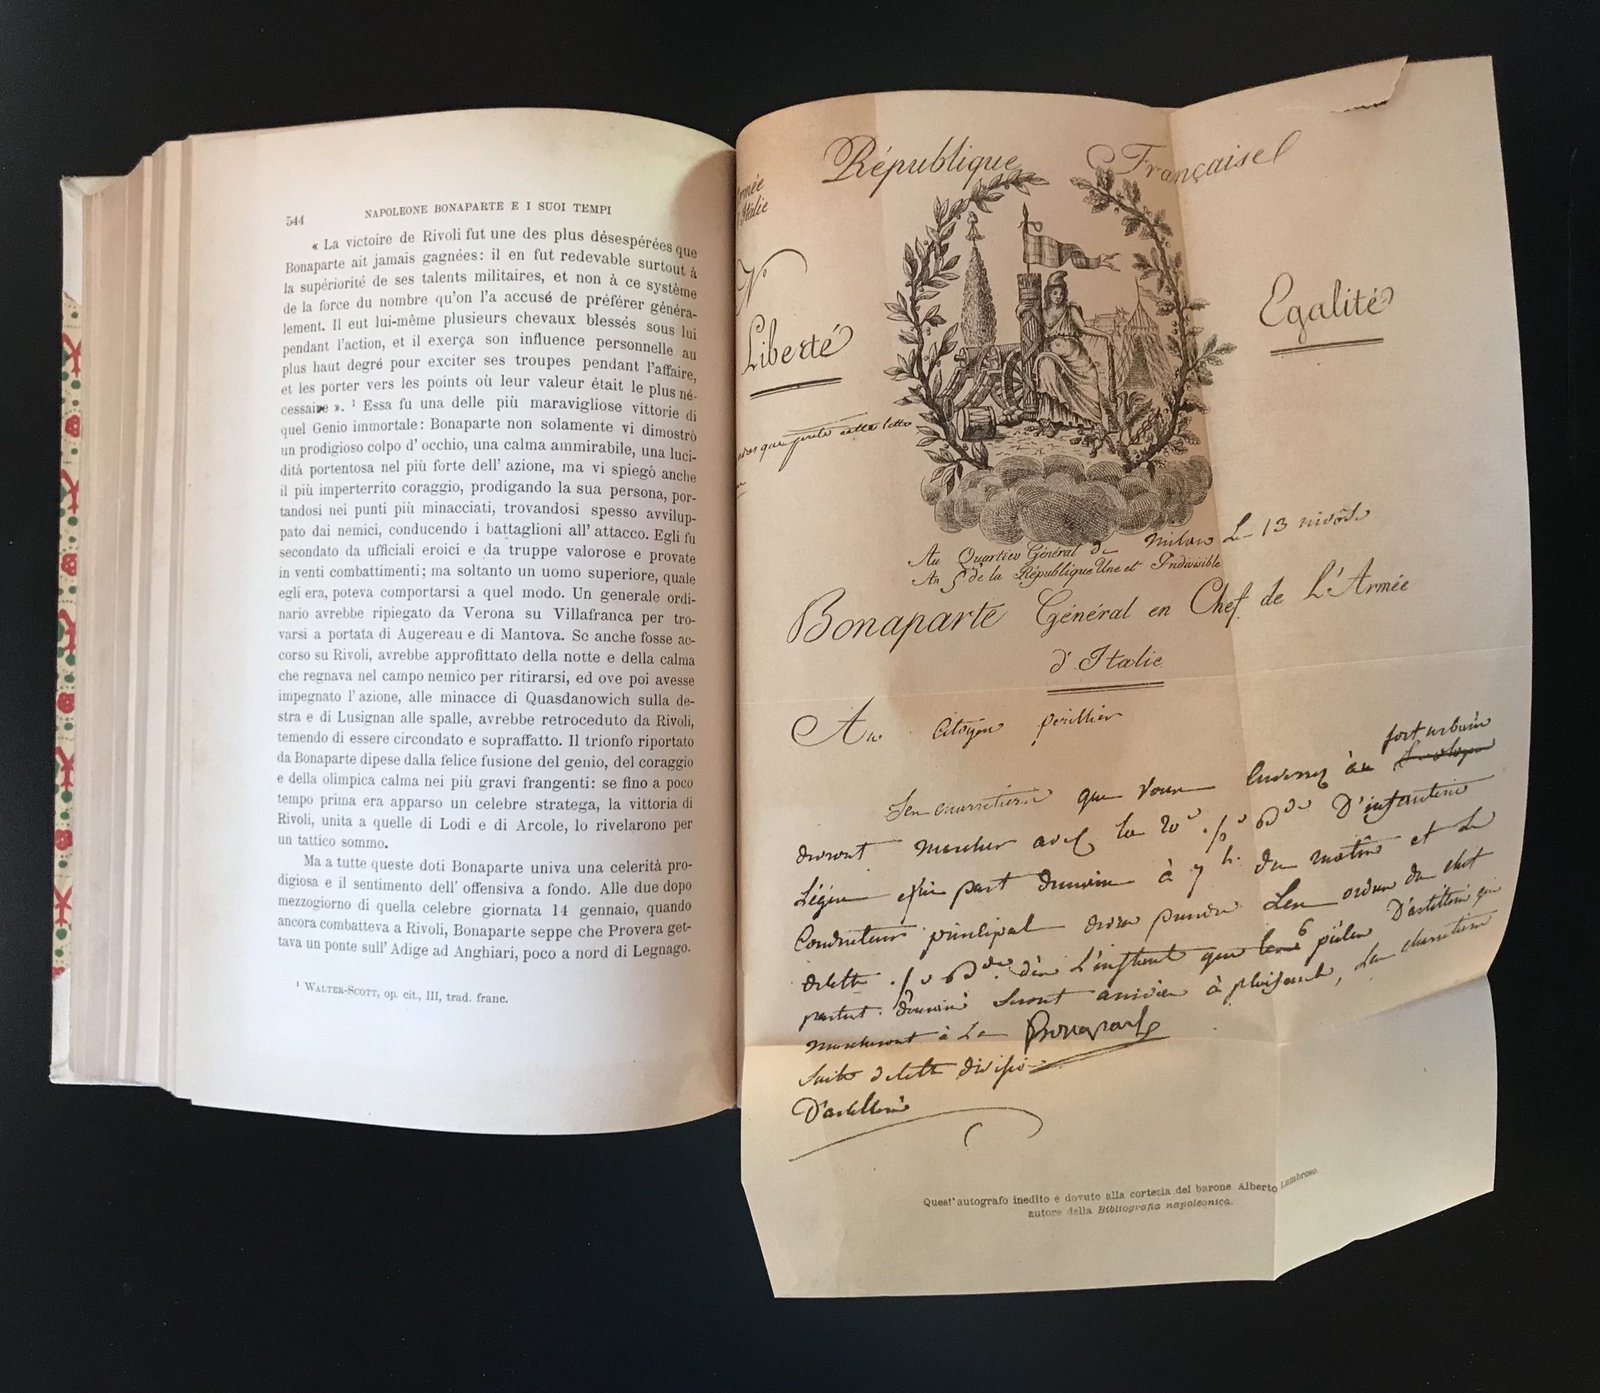 544 NAPOLEONE BONAPARTE E I SUOI TEMPI
« La victoire de Rivoli fut une des plus désespérées que
Bonaparte ait jamais gagnées: il en fut redevable surtout à
la supériorité de ses talents militaires, et non à ce système
de la force du nombre qu'on l'a accusé de préférer généra-
lement. Il eut lui-même plusieurs chevaux blessés sous lui
pendant l'action, et il exerça son influence personnelle au
plus haut degré pour exciter ses troupes pendant l'affaire,
et les porter vers les points où leur valeur était le plus né-
cessaire ». ¹ Essa fu una delle più maravigliose vittorie di
quel Genio immortale: Bonaparte non solamente vi dimostrò
un prodigioso colpo d' occhio, una calma ammirabile, una luci-
dità portentosa nel più forte dell' azione, ma vi spiegò anche
il più imperterrito coraggio, prodigando la sua persona, por-
tandosi nei punti più minacciati, trovandosi spesso avvilup-
pato dai nemici, conducendo i battaglioni all' attacco. Egli fu
secondato da ufficiali eroici e da truppe valorose e provate
in venti combattimenti; ma soltanto un uomo superiore, quale
egli era, poteva comportarsi a quel modo. Un generale ordi-
nario avrebbe ripiegato da Verona su Villafranca per tro-
varsi a portata di Augereau e di Mantova. Se anche fosse ac-
corso su Rivoli, avrebbe approfittato della notte e della calma
che regnava nel campo nemico per ritirarsi, ed ove poi avesse
impegnato l' azione, alle minacce di Quasdanowich sulla de-
stra e di Lusignan alle spalle, avrebbe retroceduto da Rivoli,
temendo di essere circondato e sopraffatto. Il trionfo riportato
da Bonaparte dipese dalla felice fusione del genio, del coraggio
e della olimpica calma nei più gravi frangenti: se fino a poco
tempo prima era apparso un celebre stratega, la vittoria di
Rivoli, unita a quelle di Lodi e di Arcole, lo rivelarono per
un tattico sommo.
Ma a tutte queste doti Bonaparte univa una celerità pro-
digiosa e il sentimento dell' offensiva a fondo. Alle due dopo
mezzogiorno di quella celebre giornata 14 gennaio, quando
ancora combatteva a Rivoli, Bonaparte seppe che Provera get-
tava un ponte sull' Adige ad Anghiari, poco a nord di Legnago.
¹ WALTER-SCOTT, op. cit., III, trad. franc.
République Française
rmée
Italie
N°
Liberté
Egalité
que porte cette lettre
Au Quartier Général de Milan Le 13 nivôse
An 5 de la République Une et Indivisible
Bonaparte Général en Chef de L'Armée
d'Italie
Au Citoyen
fort urbain
que vous à
devront marcher avec la 20e D'infanterie
Légère part demain à 7 h. du matin et le
Conducteur principal devra prendre Les ordres du chef
de cette dès L'instant que les 6 pièces D'artillerie qui
partent demain seront à plaisance, Les
marcheront à La Bonaparte
suite de cette division
D'artillerie
Quest' autografo inedito è dovuto alla cortesia del barone Alberto Lumbroso
autore della Bibliografia napoleonica.